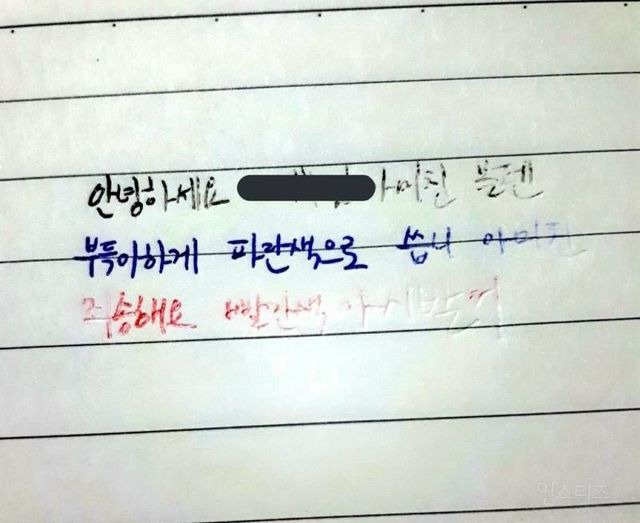 안녕하세요 아미친 볼펜
부득이하게 파란색으로 씁니 아미친
죄송해요 빨간색 아시박꺼
인스티즈